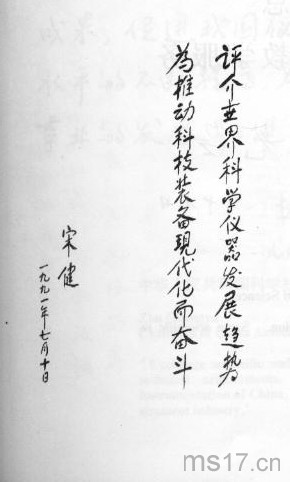 评介世界科学仪器发展趋势
為推动科技装备现代化而奋斗
宋健
一九九一年七月十日
ms17.cn